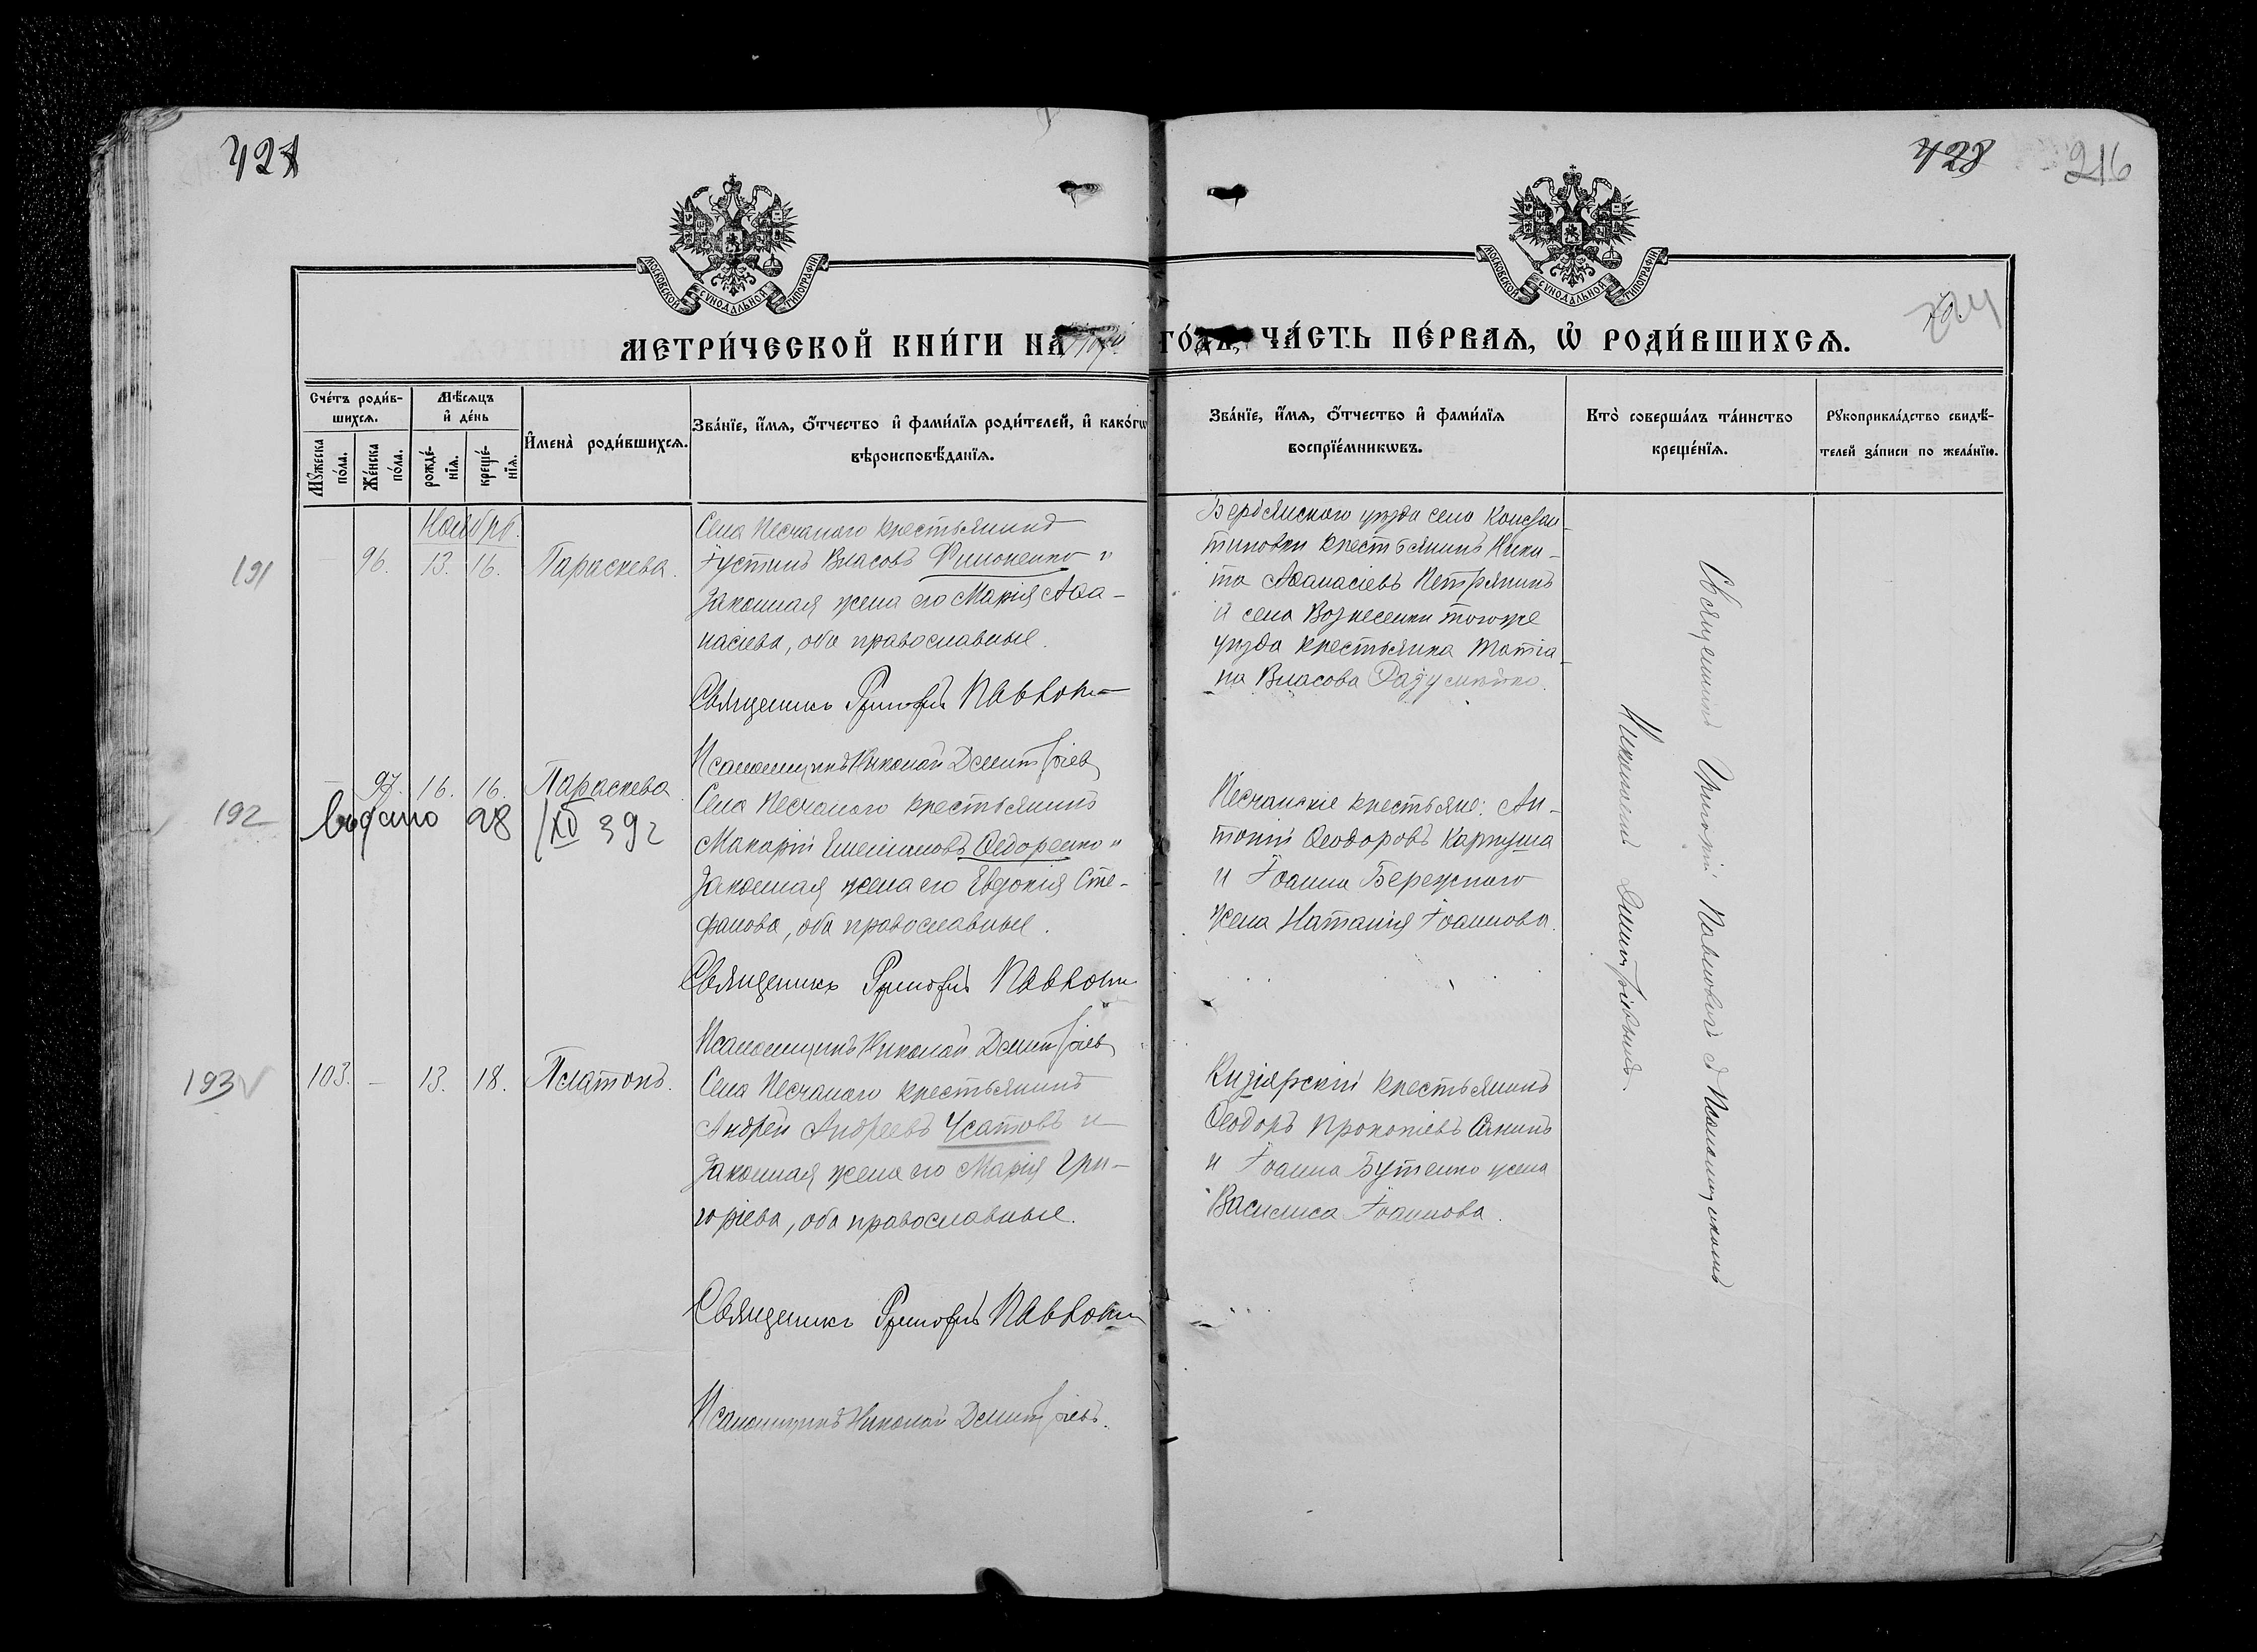 427
428
216
МОСКОВСКОЙ СѴНОДАЛЬНОЙ ТИПОГРАФІИ
МОСКОВСКОЙ СѴНОДАЛЬНОЙ ТИПОГРАФІИ
МЕТРИ́ЧЕСКОЙ КНИ́ГИ НА
ГО́ДЪ, ЧА́СТЬ ПЕ́РВАѦ, Ѡ҆ РОДИ́ВШИХСѦ.
Сче́тъ роди́в-
шихсѧ.
Мꙋ́жеска
по́ла.
Же́нска
по́ла.
Мѣ́сѧцъ
и҆ де́нь
рожде́-
нїѧ.
креще́-
нїѧ.
И҆мена̀ роди́вшихсѧ.
Зва́нїе, и҆́мѧ, ѻ҆́тчество и҆ фами́лїѧ роди́телей, и҆ како́гѡ
вѣроисповѣ́данїѧ.
Зва́нїе, и҆́мѧ, ѻ҆́тчество и҆ фами́лїѧ
воспрїе́мникѡвъ.
Кто̀ соверша́лъ та́инство
креще́нїѧ.
Рꙋкоприкла́дство свидѣ́-
телей за́писи по жела́нїю.
Ноябрь.
191
96.
13.
16.
Параскева.
Села Песчаного крестьянинъ
Іустинъ Власовъ Филоненко и
законная жена его Марія Аѳа-
насіева, оба православные.
Священникъ Григорій Павлови
Псаломщикъ Николай Димитріев
Бердянскаго уѣзда села Констан-
тиновки крестьянинъ Ники-
та Аѳанасіевъ Петрянинъ
и села Вознесенки тогоже
уѣзда крестьянка Татіа-
на Власова
192
97.
16.
16.
Параскева
Видано 28/XII 39 г
Села Песчаного крестьянинъ
Макарій Емеліановъ Ѳедоренко и
законная жена его Евдокія Сте-
фанова, оба православные.
Священникъ Григорій Павлови
Псаломщикъ Николай Димитріев
Песчанскіе крестьяне: Ан-
тоній Ѳеодоровъ Карпуша
и Іоанна Бережного
жена Наталія Іоаннова.
193
103.
–
13.
18.
Платонъ.
Села Песчаного крестьянинъ
Андрей Андреевъ Усатовъ и
законная жена его Марія Гри-
горіева, оба православные.
Священникъ Григорій Павлови
Псаломщикъ Николай Димитріевъ.
Кизіярскій крестьянинъ
Ѳеодоръ Прокопіевъ
и Іоанна Бутенко жена
Василиса Іоаннова.
Священникъ Григорій Павловичъ съ Псаломщикомъ
Николаемъ Димитріевымъ.